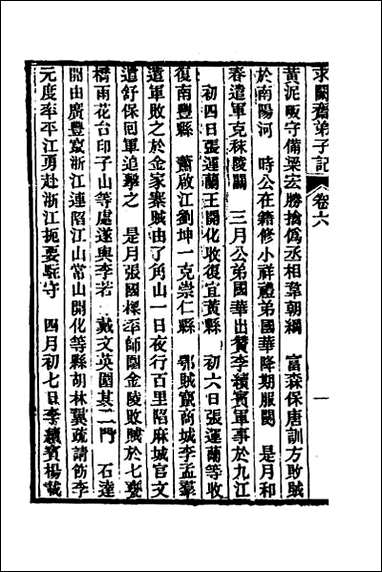 求闕齋弟子記 卷六 一
黃泥畈守備梁宏勝擒偽丞相韋朝綱 富森保唐訓方敗賊
於南陽河 時公在籍修小祥禮弟國華降期服闋 是月和
春遣軍克秣陵關 三月公弟國華出贊李續賓軍事於九江
初四日張運蘭王開化收復宜黃縣 初六日張運蘭等收
復南豐縣 蕭啟江劉坤一克崇仁縣 鄂賊竄商城李孟羣
遣軍敗之於金家寨賊由了角山一日夜行百里陷麻城官文
遣舒保回軍追擊之 是月張國樑率師圍金陵敗賊於七甕
橋雨花台印子山等處遂與李若 戴文英圍其二門 石達
開由廣豐竄浙江連陷江山常山開化等縣胡林翼疏請飭李
元度率平江勇赴浙江扼要駐守 四月初七日李續賓楊載